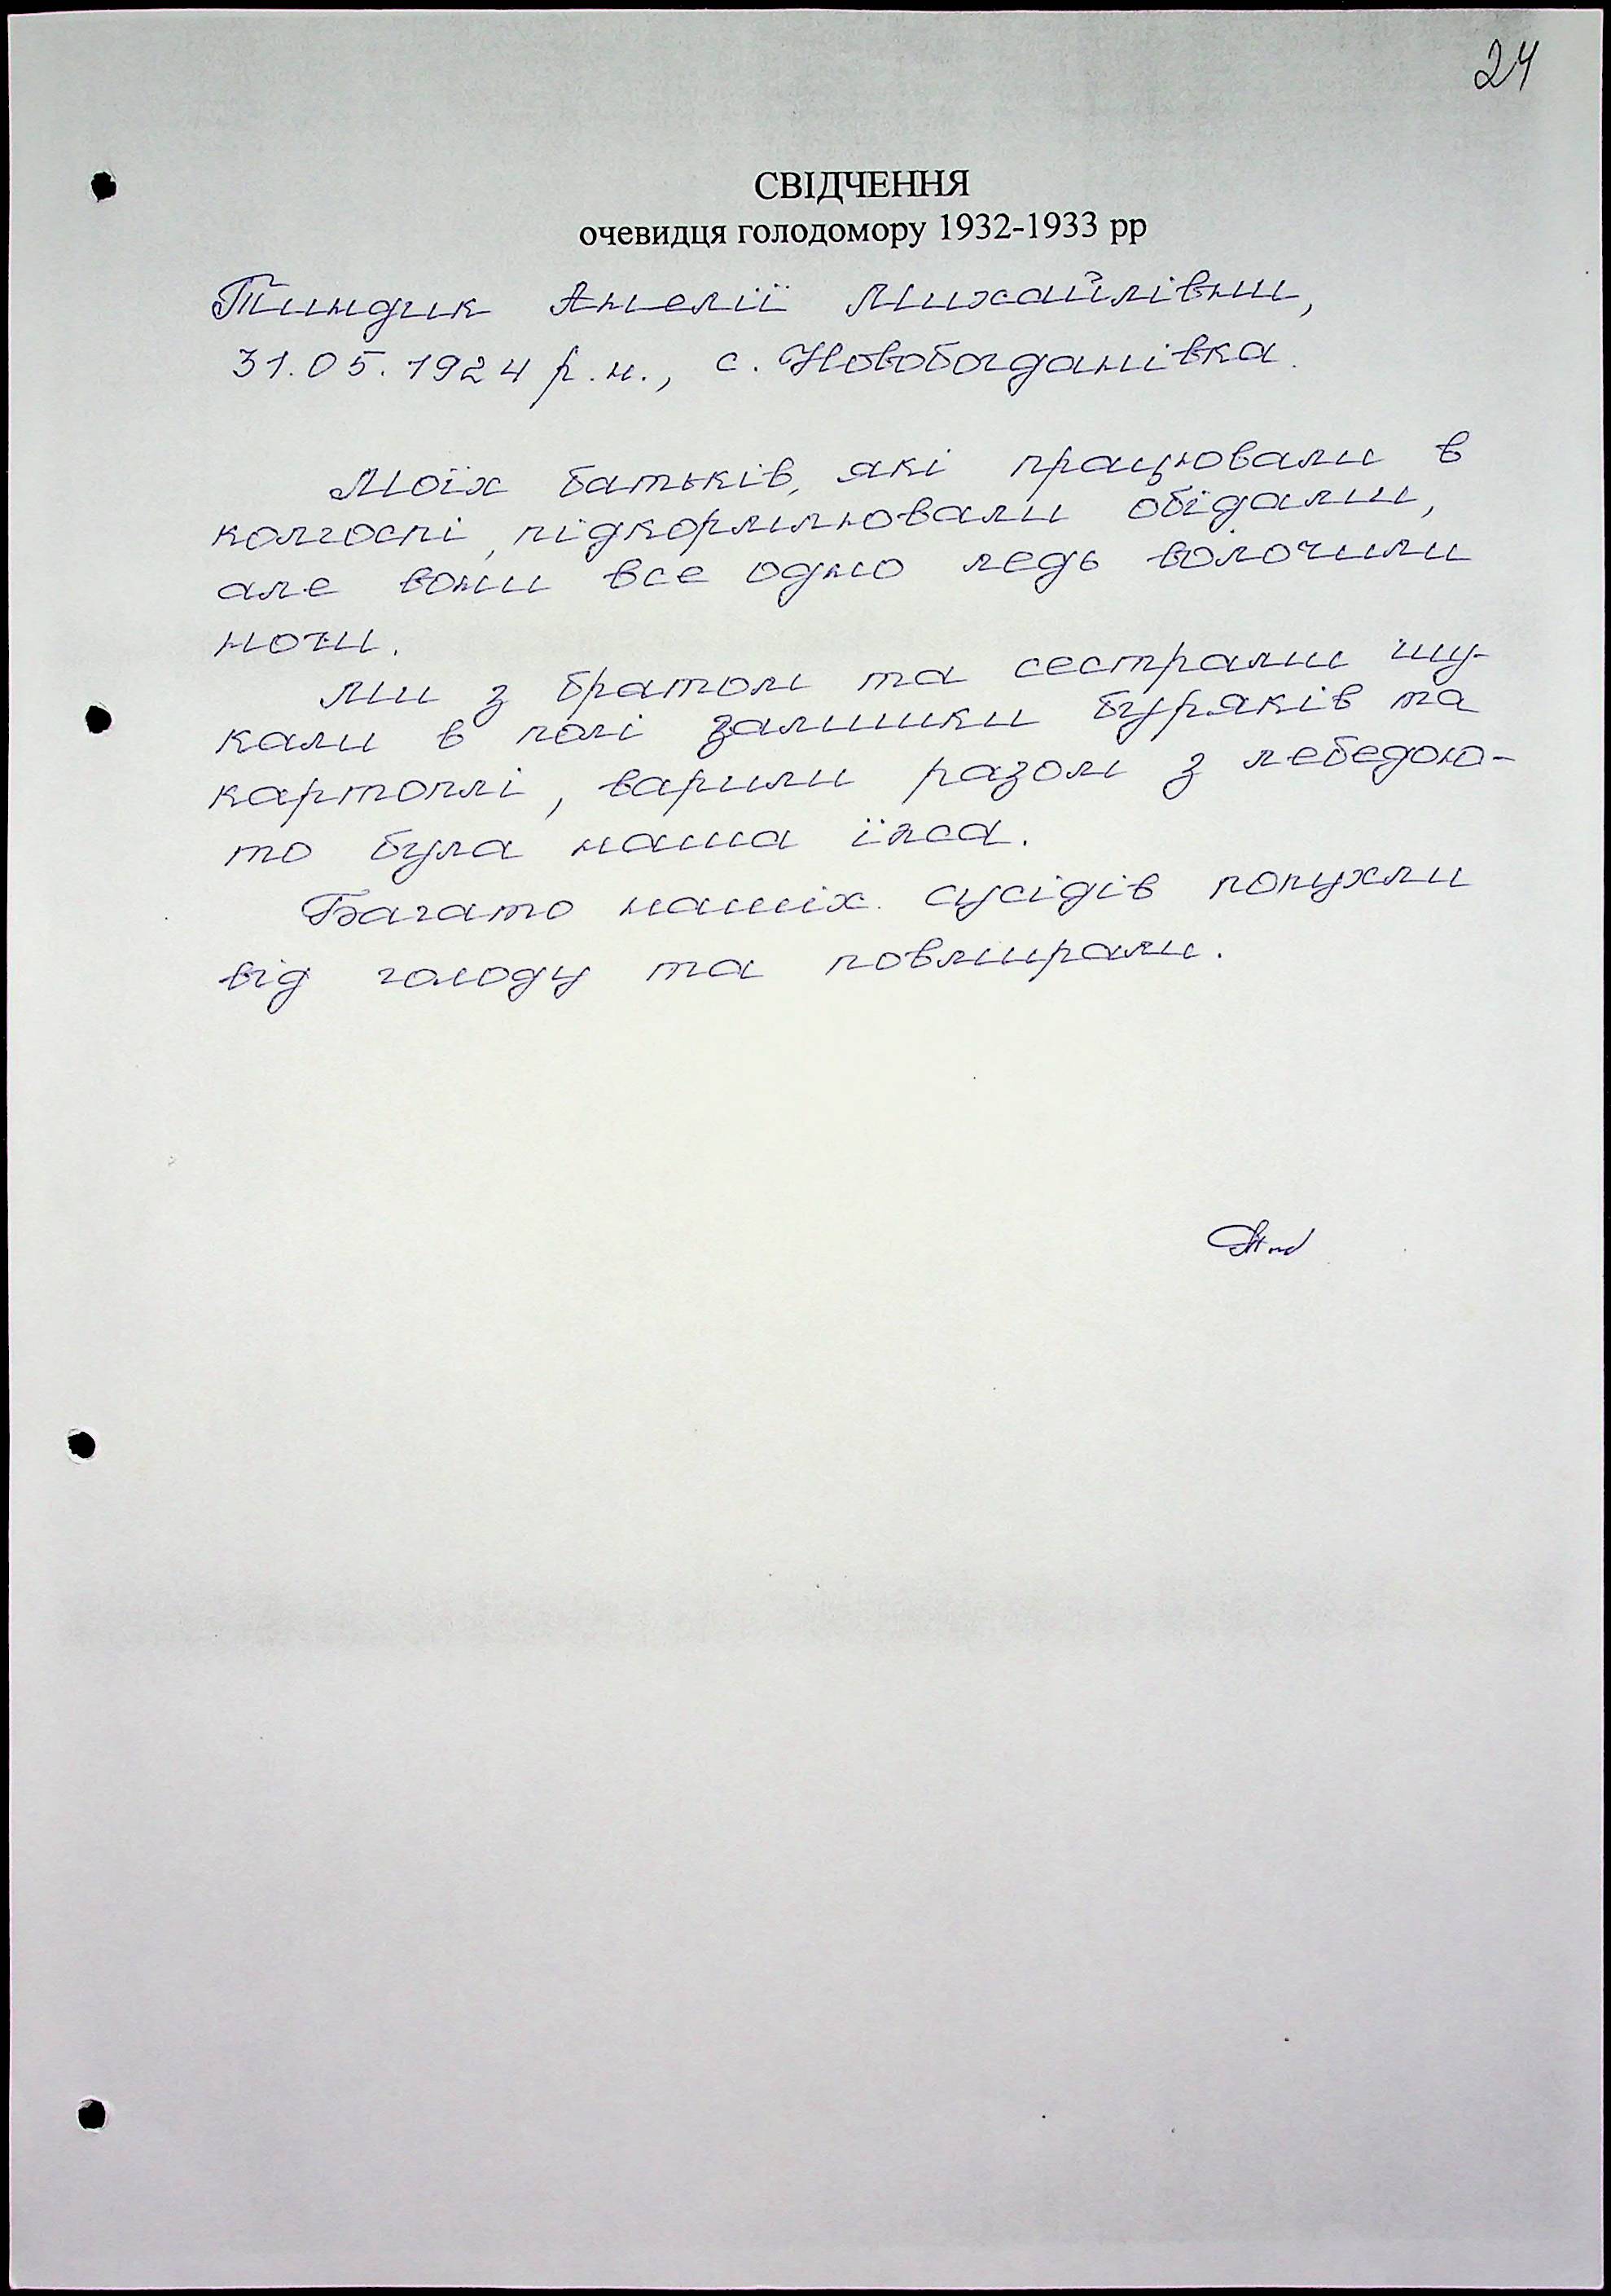 24
СВІДЧЕННЯ
очевидця голодомору 1932-1933 рр
Тиндик Анелії Михайлівни,
31.05.1924 р.н., с. Новобогданівка.
Моїх батьків, які працювали в
колгоспі, підкормлювали обідами,
але вони все одно ледь волочили
ноги.
Ми з братом та сестрами шу-
кали в полі залишки буряків та
картоплі, варили разом з лебедою-
то була наша їжа.
Багато наших сусідів попухли
від голоду та повмирали.